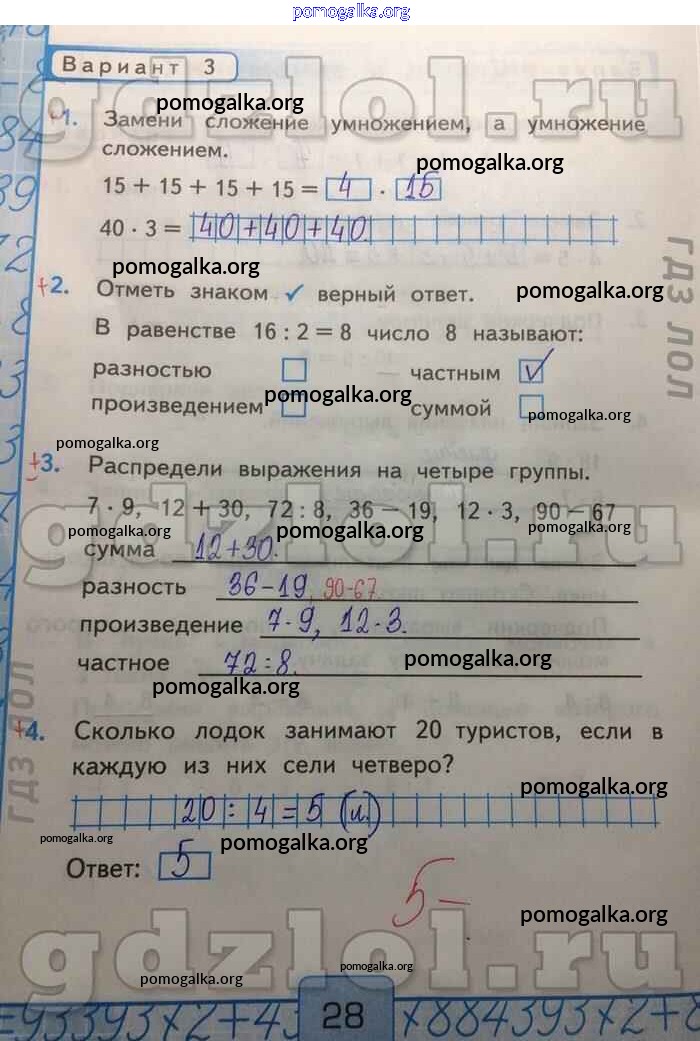 pomogalka.org
Вариант 3
gdzlol.ru
pomogalka.org
1. Замени сложение умножением, а умножение
сложением.
pomogalka.org
15 + 15 + 15 + 15 = 4 · 15
40 · 3 = 40+40+40.
pomogalka.org
+2. Отметь знаком ✓ верный ответ.
pomogalka.org
В равенстве 16 : 2 = 8 число 8 называют:
разностью частным ✓
pomogalka.org
произведением суммой
pomogalka.org
pomogalka.org
+3. Распредели выражения на четыре группы.
7 · 9, 12 + 30, 72 : 8, 36 – 19, 12 · 3, 90 – 67
gdzlol.ru
pomogalka.org pomogalka.org pomogalka.org
сумма 12+30.
разность 36-19, 90-67.
произведение 7·9, 12·3.
частное 72:8.
pomogalka.org
pomogalka.org
гдз лол
гдз лол
+4. Сколько лодок занимают 20 туристов, если в
каждую из них сели четверо?
pomogalka.org
20:4=5 (л.)
pomogalka.org
pomogalka.org
Ответ: 5
5-
pomogalka.org
gdzlol.ru
pomogalka.org
pomogalka.org
28